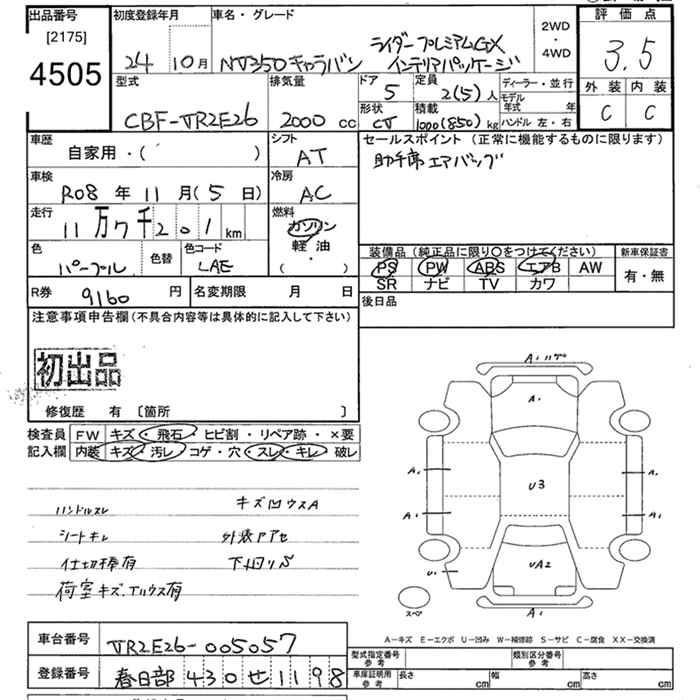 出品番号 初度登録年月 車名・グレード 2WD・4WD 評価点
[2175]
4505
24 10月 NV350キャラバン ライダープレミアムGX インテリアパッケージ
3.5
型式 排気量 ドア 定員 ディーラー・並行 外装 内装
CBF-VR2E26 2000 cc 5 2(5)人 モデル年式 年 C C
形状 積載 ハンドル 左・右
CV 1000(850)kg
車歴 シフト セールスポイント(正常に機能するものに限ります)
自家用・( ) AT 助手席エアバッグ
車検 冷房
R08年11月(5日) AC
走行 燃料
11万7千201km ガソリン
軽油
・
( )
色 色替 色コード 装備品(純正品に限り〇をつけてください) 新車保証書
パープル LAE PS PW ABS エアB AW 有・無
SR ナビ TV カワ
R券 9160円 名変期限 月 日 後日品
注意事項申告欄(不具合内容等は具体的に記入して下さい)
初出品
修復歴 有 [箇所 ]
検査員記入欄 FW キズ・飛石・ヒビ割・リペア跡・×要
内装 キズ・汚レ・コゲ・穴・スレ・キレ・破レ
ハンドルスレ キズ凹ウスA
シートキレ 外装アアセ
仕切棒有 下回りS
荷室キズ、
A1
A1
U3
A1 A1
A1 A1
UA2
U1
A1
スペア
A-キズ E-エクボ U-凹み W-補修跡 S-サビ C-腐食 XX-交換済
車台番号 VR2E26-005057
型式指定番号 参考 類別区分番号 参考
登録番号 春日部 430 せ 1198
車庫証明用 参考 長さ cm 幅 cm 高さ cm